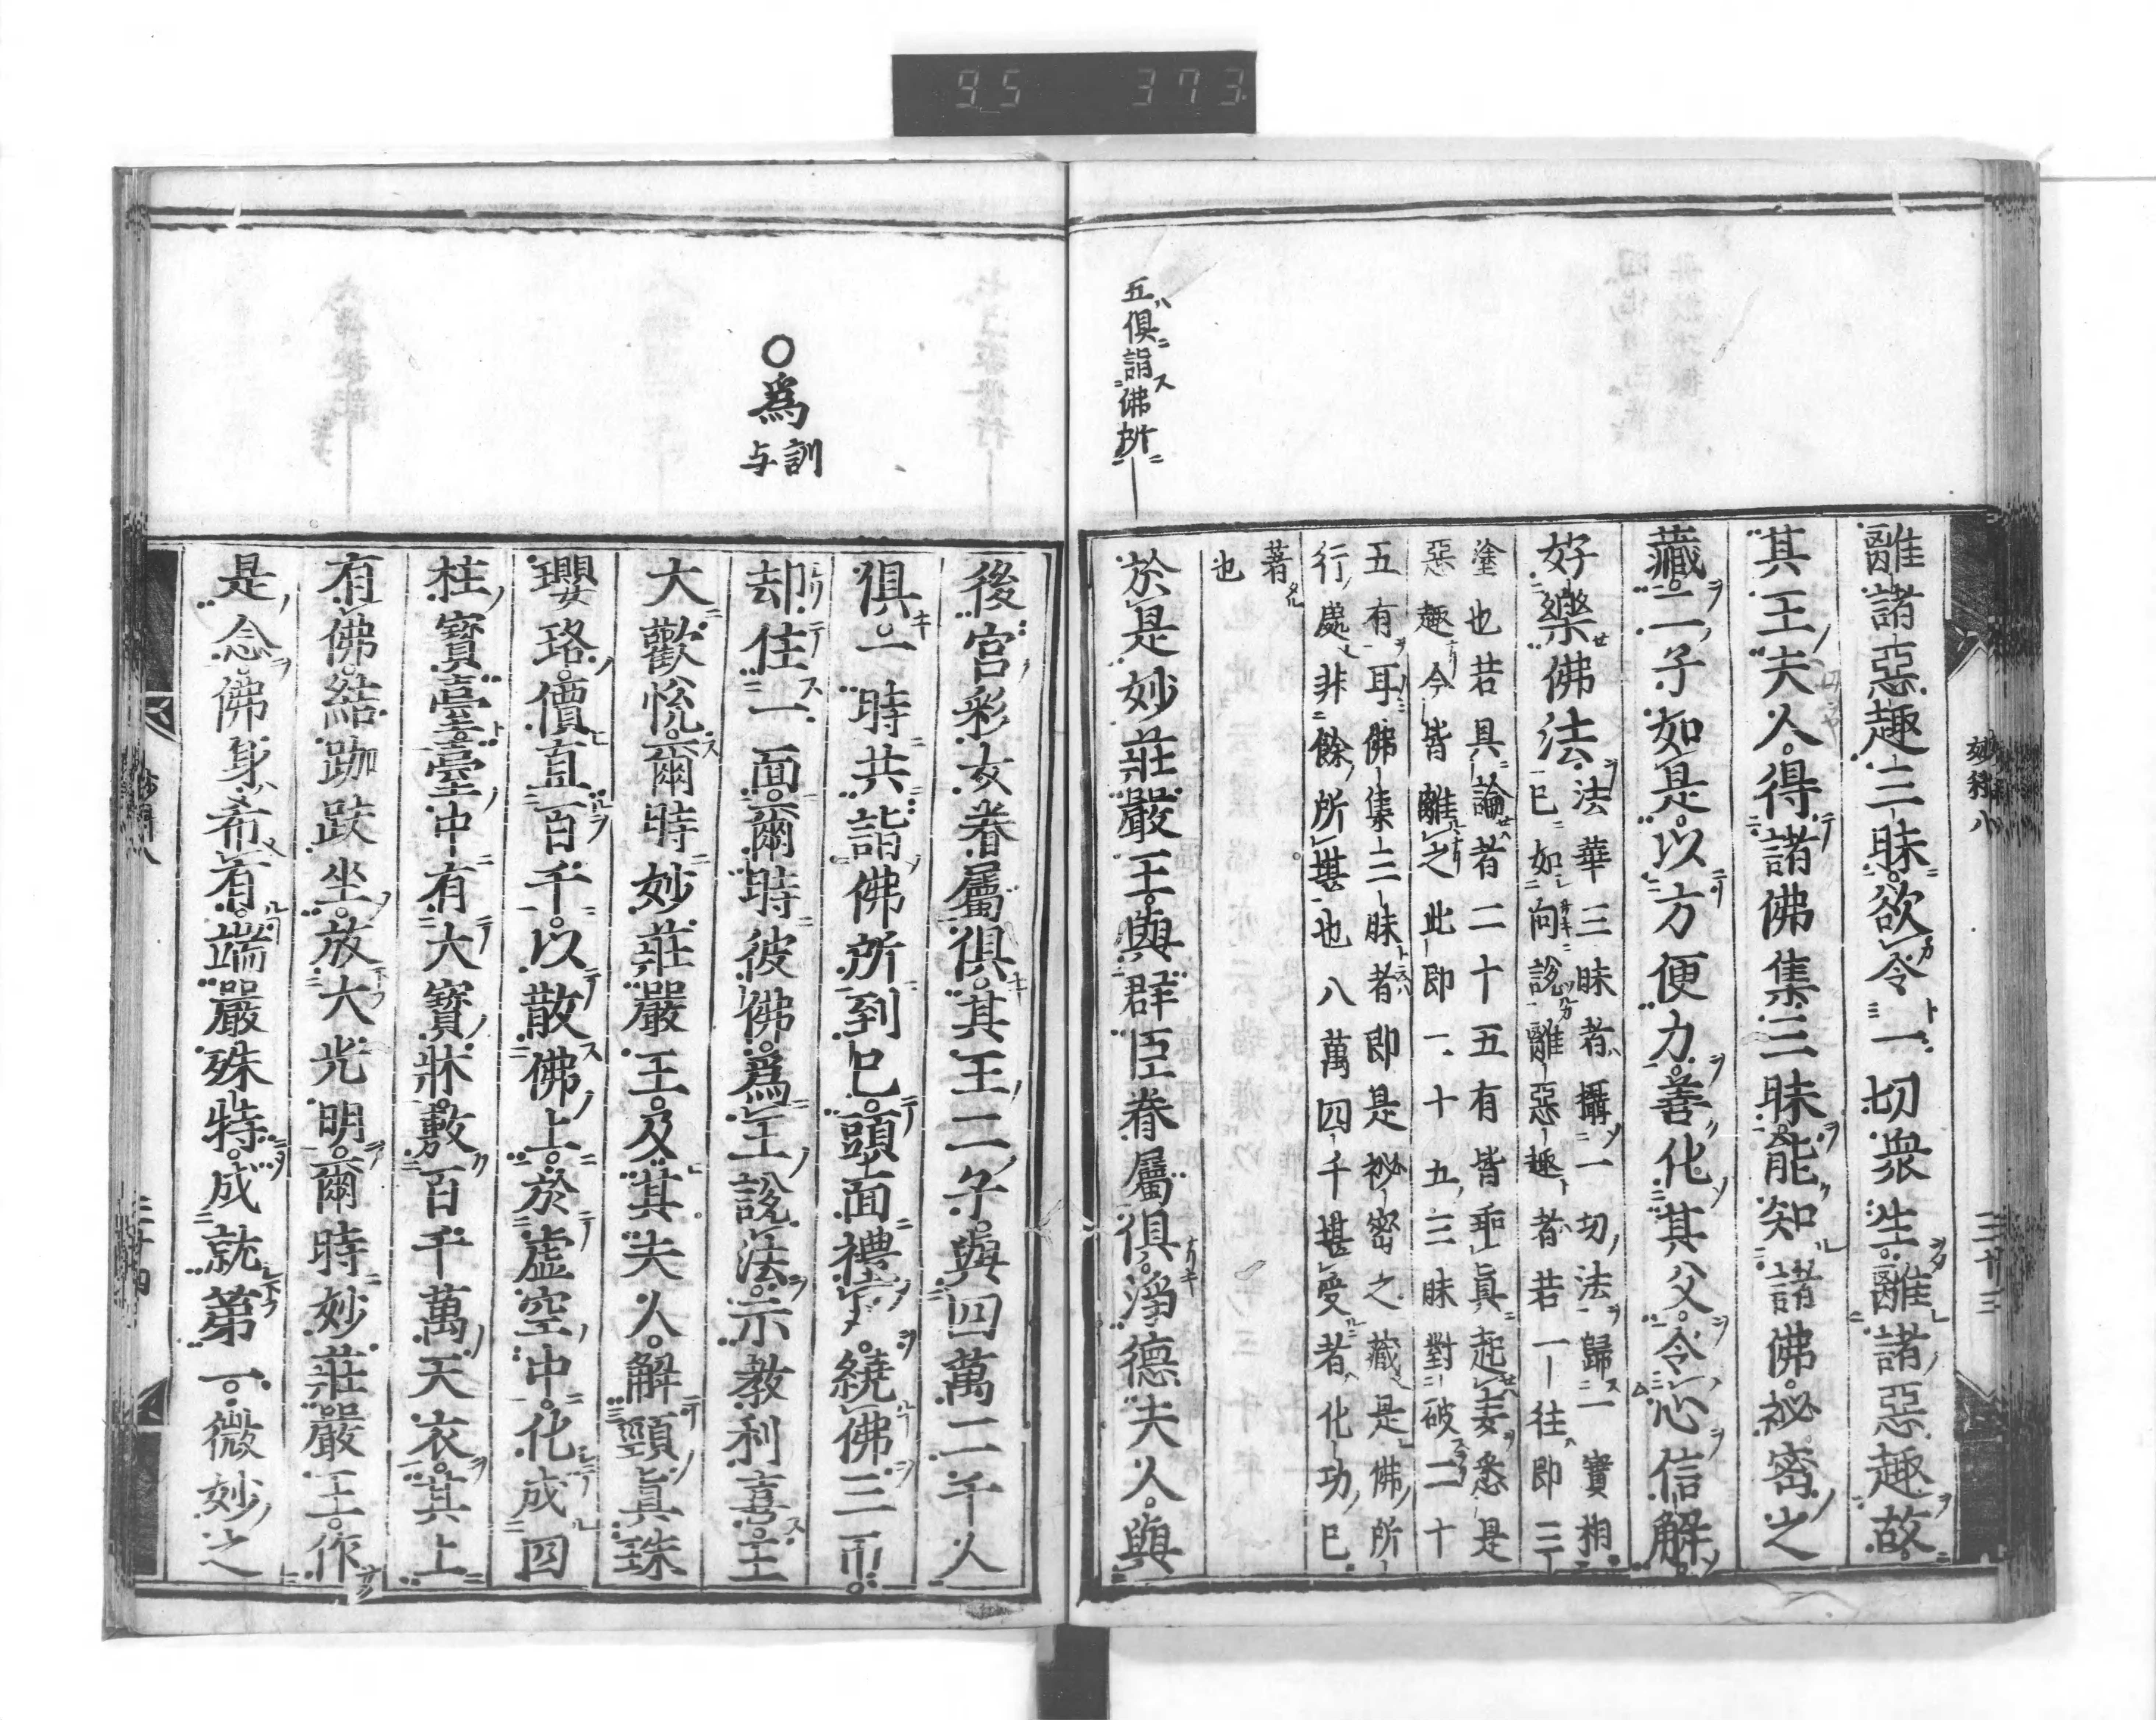 95 373
五倶詣佛所
離諸惡趣三昧。欲令一切衆生。離諸惡趣故。
其王夫人。得諸佛集三昧。能知諸佛。祕密之
藏。二子如是。以方便力。善化其父。令心信解。
好樂佛法。
法華三昧者攝一切法歸一實相
已如向説離惡趣者若一一往即三
塗也若具論者二十五有皆乖眞起妄悉是
惡趣今皆離之此即一十五三昧對破二十
五有耳佛集三昧者即是祕密之藏是佛所
行處非餘所堪也八萬四千堪受者化功已
著
也
於是妙莊嚴王。與群臣眷屬倶。淨德夫人。與
三十三
○爲
訓
与
後宮彩女眷屬倶。其王二子。與四萬二千人
倶。一時共詣佛所。到已。頭面禮足。繞佛三帀。
却住一面。爾時彼佛。爲王説法。示教利喜。王
大歡悅。爾時妙莊嚴王。及其夫人。解頸眞珠
瓔珞。價直百千。以散佛上。於虚空中。化成四
柱寶臺。臺中有大寶牀。敷百千萬天衣。其上
有佛。結跏趺坐。放大光明。爾時妙莊嚴王。作
是念。佛身希有。端嚴殊特。成就第一。微妙之
三十四